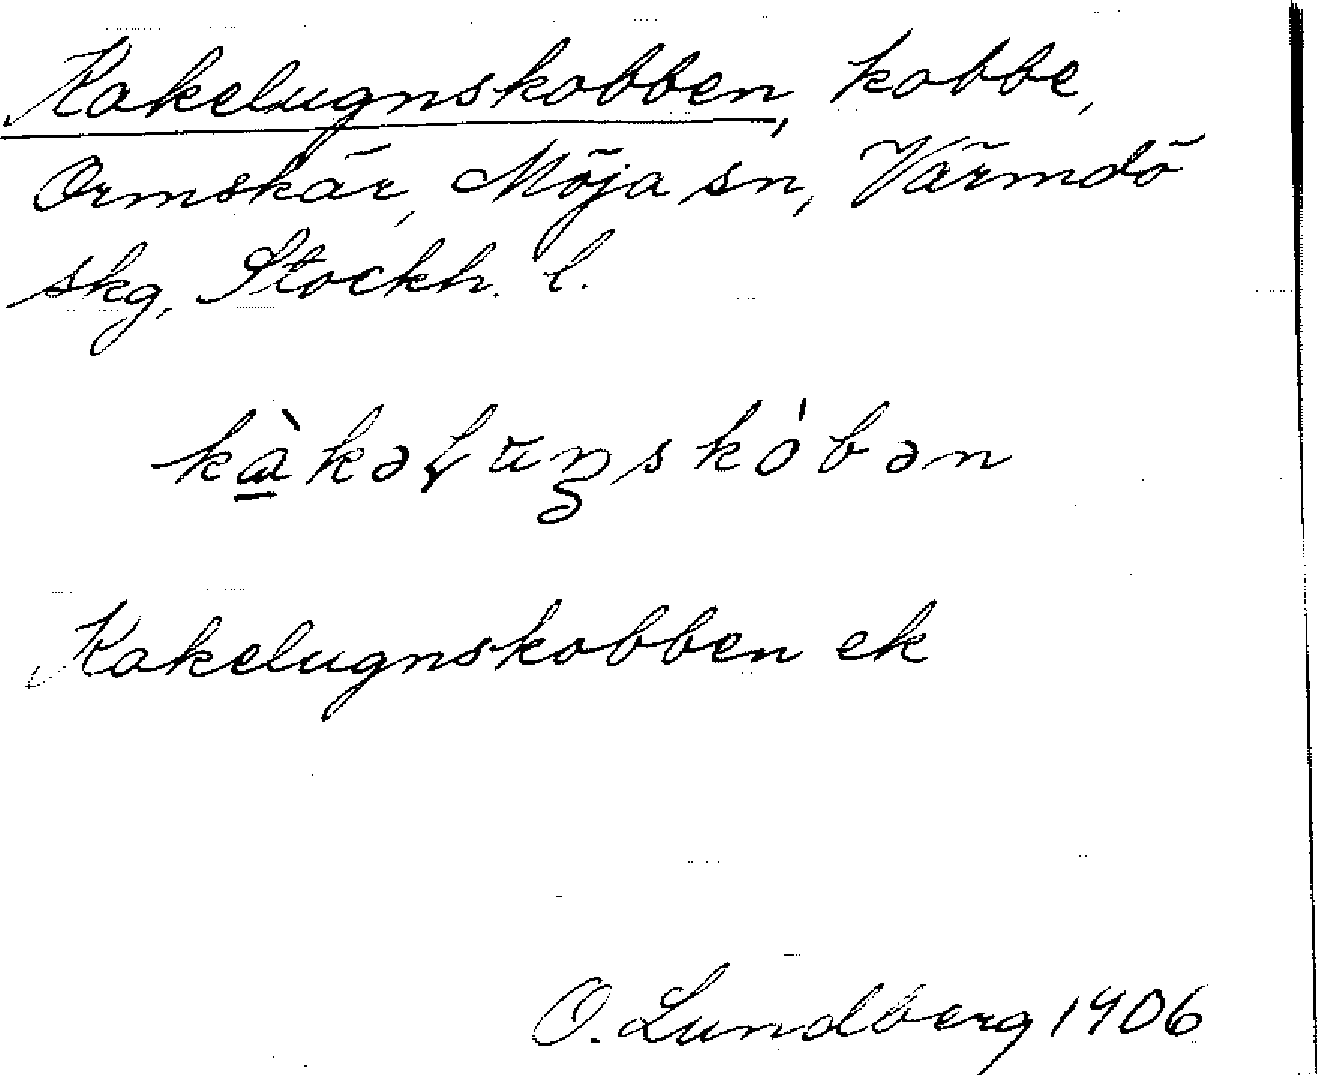 Kakelugnskobben, kobbe,
Ormskär, Möja sn, Värmdö
skg, Stockh. l.
kàkəɭuŋskȯbən
Kakelugnskobben ek
O. Lundberg 1906